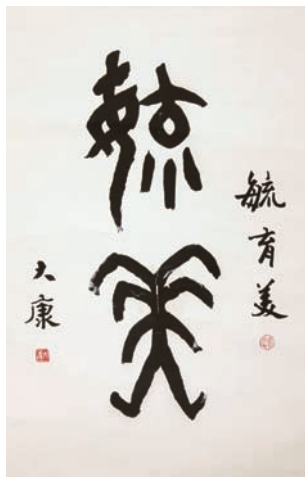 毓育美
毓美
大康